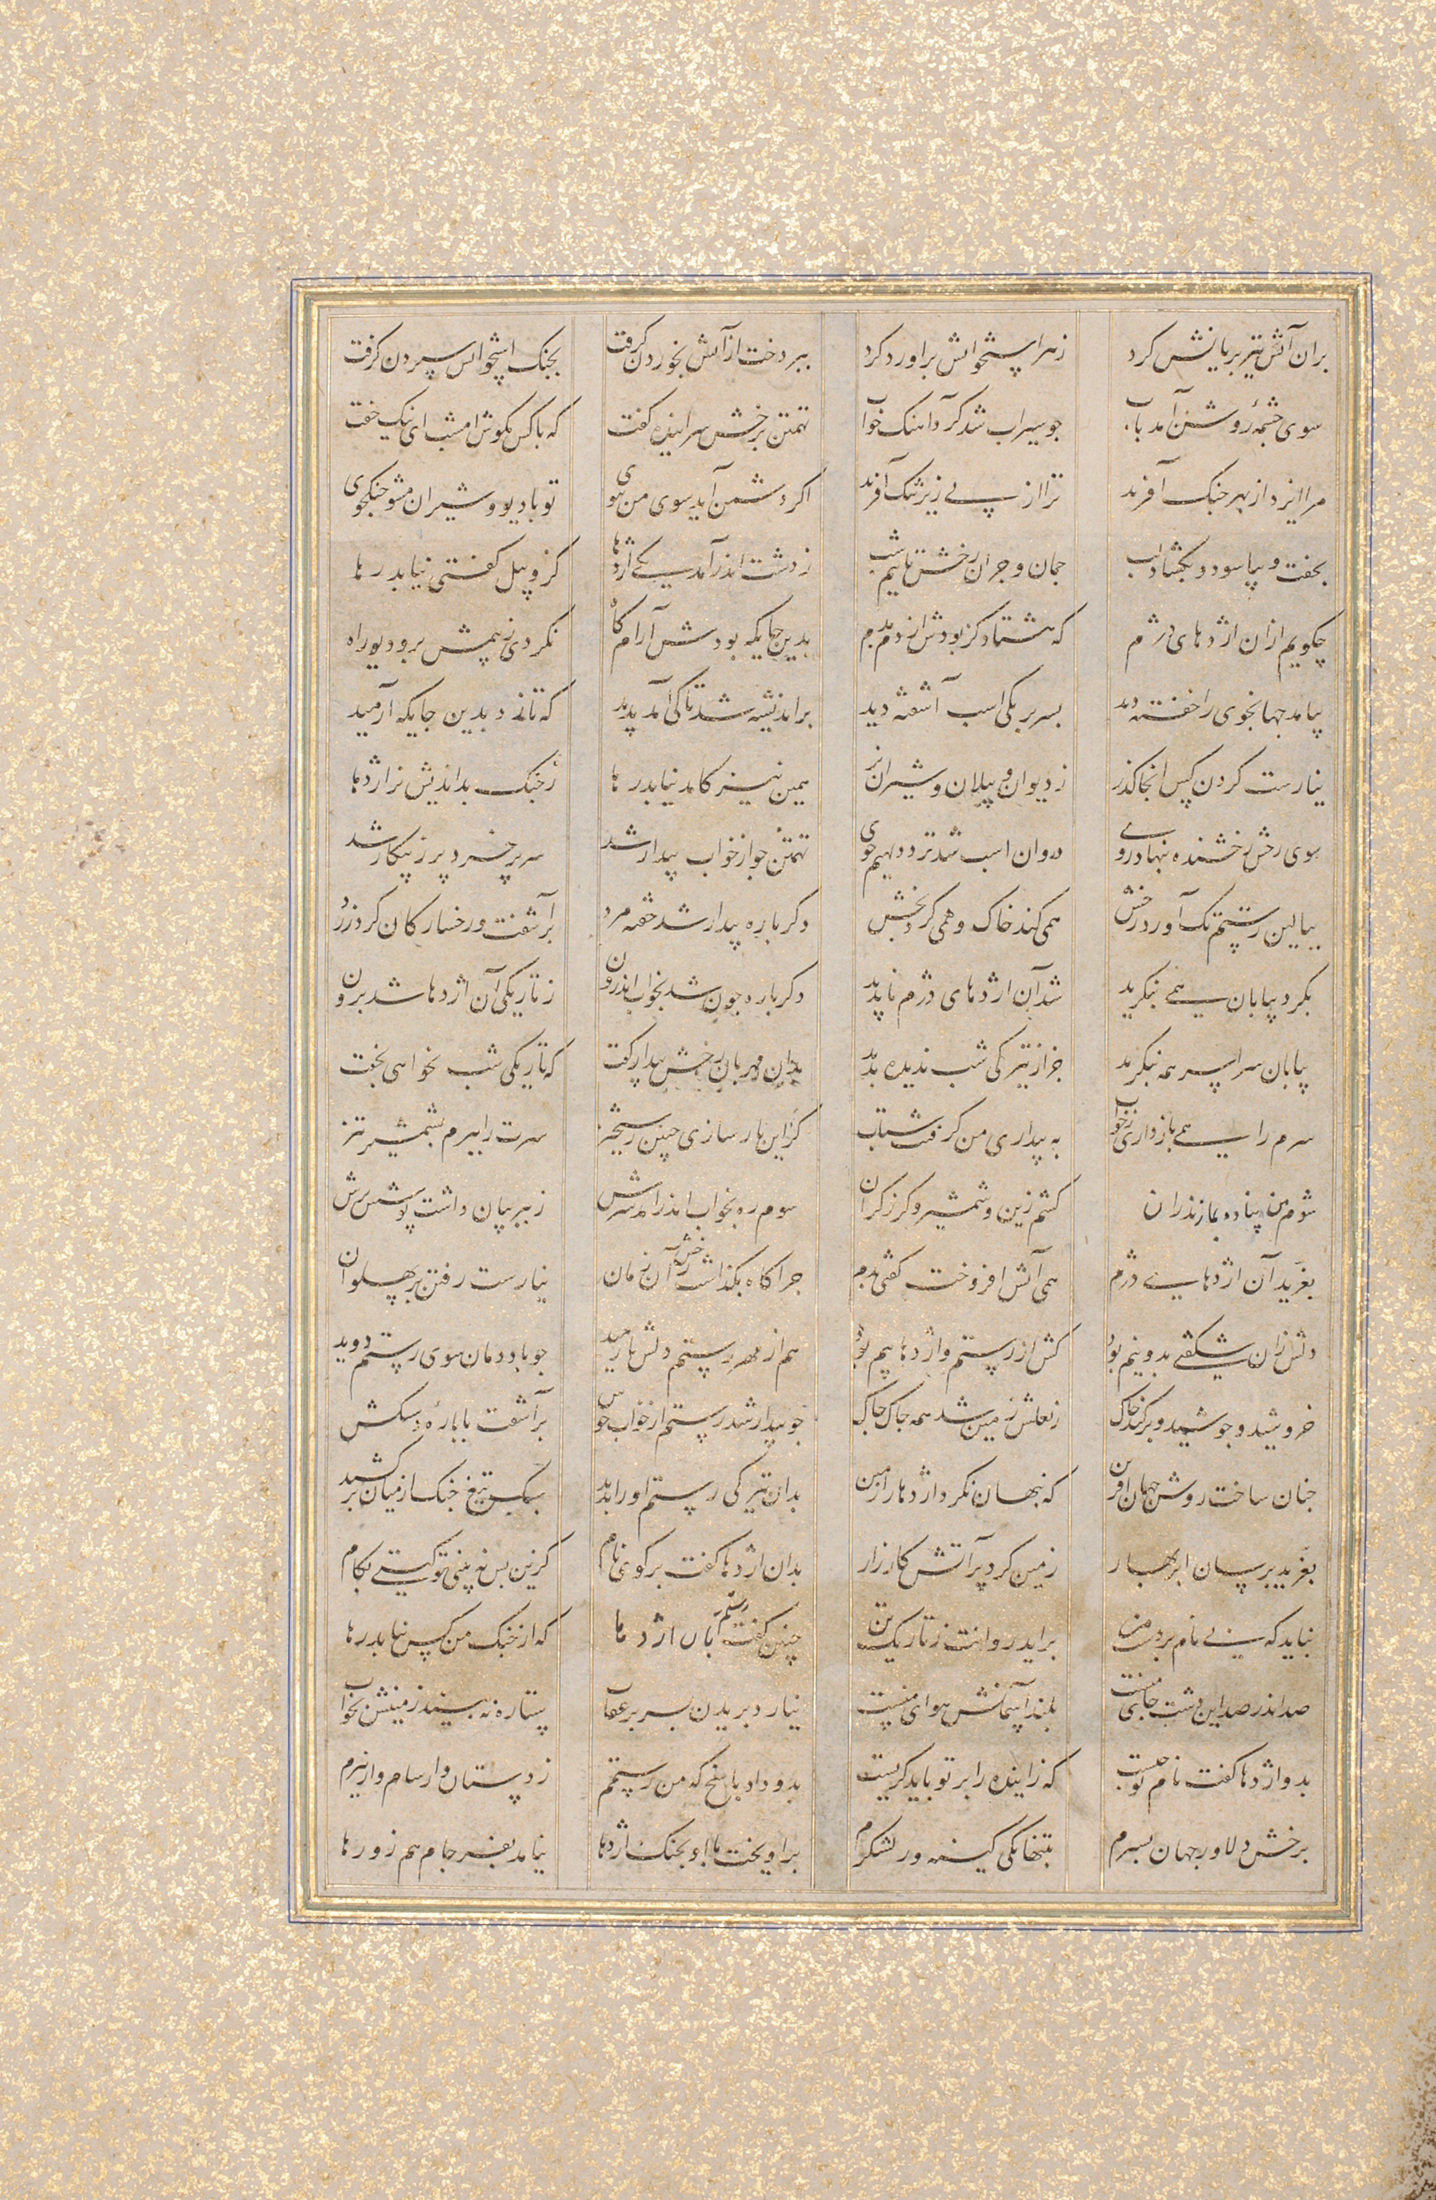 بران آتش تیز بریانش کرد زهر استخوانش براورد کرد بپردخت ازآتش بخوردن گرفت بجنک استخوانش ستردن کرفت
سوی چشمهٔ روشن آمد بآب جو سیراب شد کرد آهنک خواب تهمتن برخش سراینده کفت که با کس مکوش امشب ای نیک خفت
مرا ایزد از بهر جنک آفرید ترا از پی زیر تنک آفرید اکر دشمن آید سوی من بپوی تو با دیو و شیران مشو جنکجوی
بخفت و بیاسود و نکشاد لب جمان و جران رخش تا نیم شب ز دشت اندر آمد یکی اژدها کزو پیل کفتی نیابد رها
چکویم ازان اژدهای دژم که هشتاد کز بودش از دم بدم بدین جایکه بودش آرام کاه نکردی ز بیمش برو دیو راه
بیامد جهانجوی را خفته دید بسر بر یکی اسب آشفته دید براندیشه شد تا کی آمد پدید که تازد بدین جایکه آرمید
نیارست کردن کس انجا کذر ز دیوان و پیلان و شیران نر همین نیز کامد نیابد رها ز جنک بداندیش نر اژدها
سوی رخش رخشنده بنهاد روی دوان اسب شد نزد دیهیم جوی تهمتن جو از خواب بیدار شد سر پر خرد پر ز پیکار شد
ببالین رستم تک آورد رخش همی کند خاک و همی کرد بخش دکر باره بیدار شد خفته مرد برآشفت و رخسارکان کرد زرد
بکرد بیابان همی بنکرید شد آن اژدهای دژم ناپدید دکر باره جون شد بخواب اندرون ز تاریکی آن اژدها شد برون
بیابان سراسر همه بنکرید جز از تیرکی شب ندیده بدید بدان مهربان رخش بیدار کفت که تاریکی شب نخواهی نهفت
سرم را همی باز داری ز خواب به بیداری من کرفتت شتاب کر این بار سازی جنین رستخیز سرت را ببرم بشمشیر تیز
شوم من پیاده بمازندران کشم زین و شمشیر و کرز کران سوم ره بخواب اندر آمد سرش ز ببر بیان داشت پوشش برش
بغرید آن اژدهای دژم همی آتش افروخت کفتی بدم جراکاه بکذاشت رخش آن زمان نیارست رفتن بر پهلوان
دلش زان شکفتی بدو نیم بود کش از رستم و اژدها بیم بود هم از مهر رستم دلش نارمید جو باد دمان سوی رستم دوید
خروشید و جوشید و برکند خاک ز نعلش زمین شد همه جاک جاک جو بیدار شد رستم از خواب خوش برآشفت با بارهٔ دستکش
جنان ساخت روشن جهان آفرین که پنهان نکرد اژدها را زمین بدان تیرکی رستم او را بدید سبک تیغ جنک از میان برکشید
بغرید برسان ابر بهار زمین کرد پر آتش کارزار بدان اژدها کفت برکوی نام کزین بس نه بینی تو کیتی بکام
نباید که بی نام بر دست من براید روانت ز تاریک تن جنین کفت رستم باں اژدها که از جنک من کس نیابد رها
صد اندر صد این دشت جای منست بلند آسمانش هوای منست نیارد بریدن بسر بر عقاب ستاره نه بیند زمینش بخواب
بدو اژدها کفت نام تو جیست که زاینده را بر تو باید کریست بدو داد پاسخ که من رستمم ز دستان و از سام و از نیرمم
برخش دلاور جهان بسپرم بتنها یکی کینه ور لشکرم براویخت با او بجنک اژدها نیامد بفرجام هم زو رها